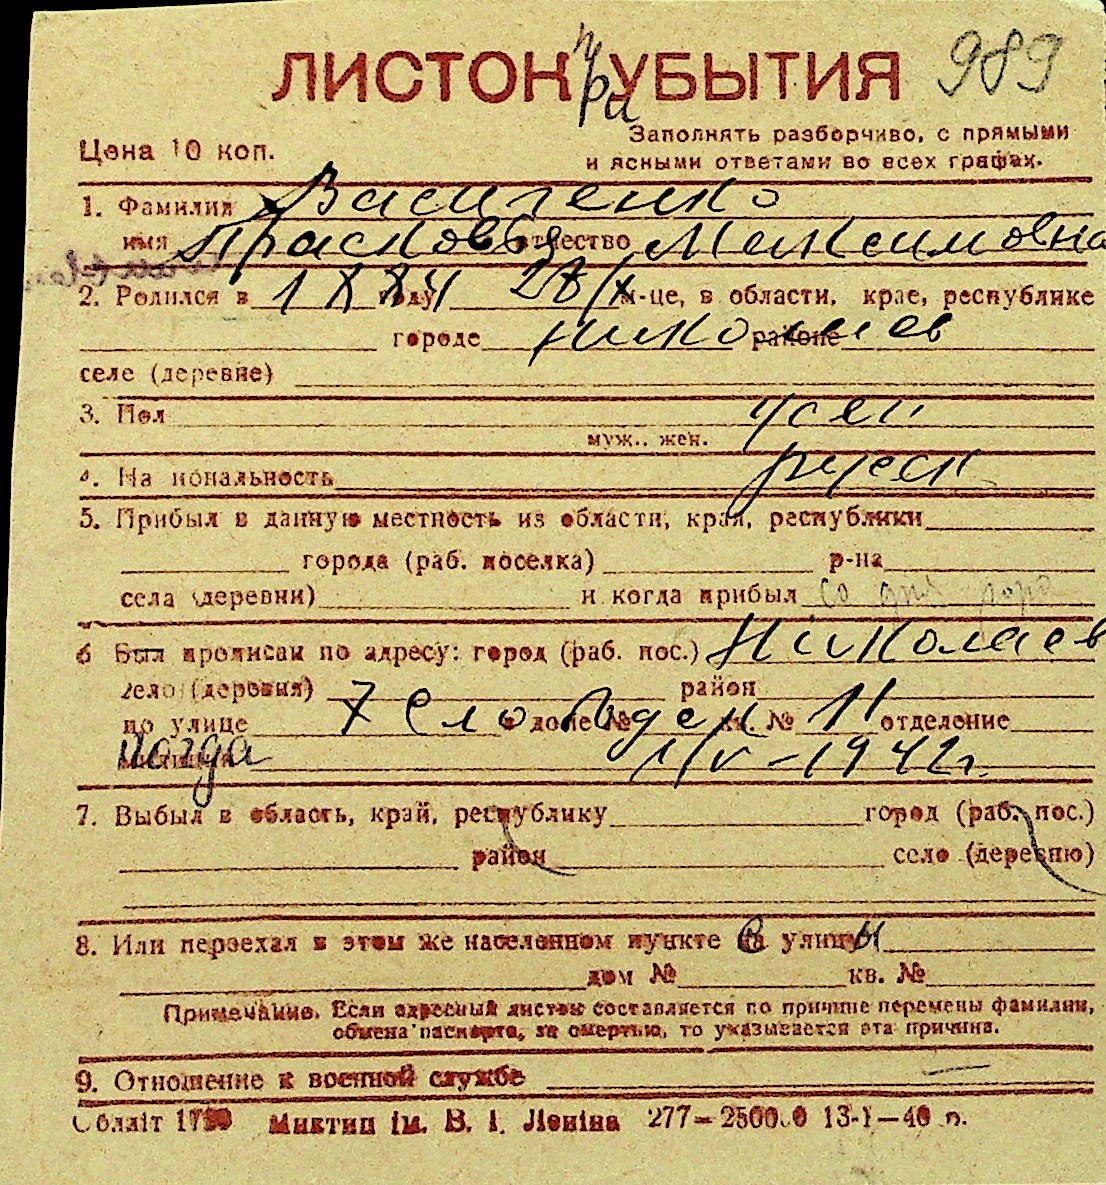 ЛИСТОК УБЫТИЯ 989
Заполнять разборчиво, с прямыми
Цена 10 коп. и ясными ответами во всех графах.
1. Фамилия Василенко
имя Прасковья отчество Максимовна
2. Родился в 1884 году 28/X м-це, в области, крае, республике
городе Николаев районе
селе (деревне)
3. Пол муж., жен. жен
4. Национальность русск
5. Прибыл в данную местность из области, края, республики
города (раб. поселка) р-на
села (деревни) и когда прибыл со дня рожд
6 Был прописан по адресу: город (раб. пос.) Николаев
село (деревня) район
по улице 7 Слободск в доме № кв. № 11 отделение
милиции 1/IV-1942г.
7. Выбыл в область, край, республику город (раб. пос.)
район село (деревню)
8. Или переехал в этом же населенном пункте с улицы
дом № кв. №
Примечание. Если адресный листок составляется по причине перемены фамилии,
обмена паспорта, за смертью, то указывается эта причина.
9. Отношение к военной службе
Облліт Миктип ім. В. І. Леніна 277—25000 13-І—40 р.